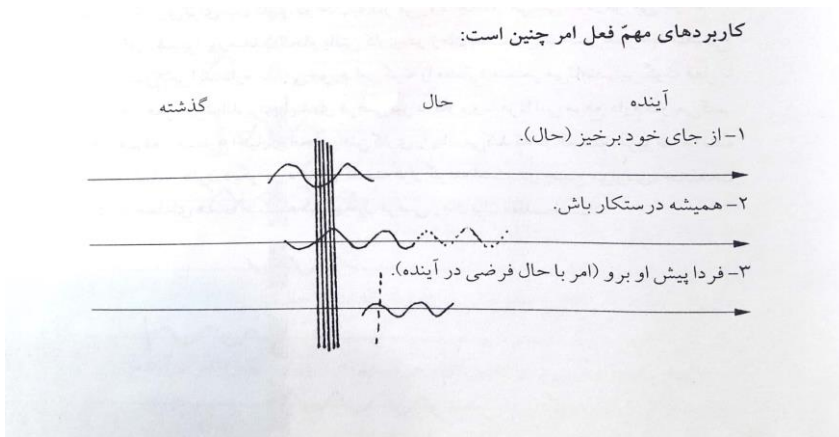 کاربردهای مهمّ فعل امر چنین است:
آینده حال گذشته
۱- از جای خود برخیز (حال).
۲- همیشه درستکار باش.
۳- فردا پیش او برو (امر با حال فرضی در آینده).